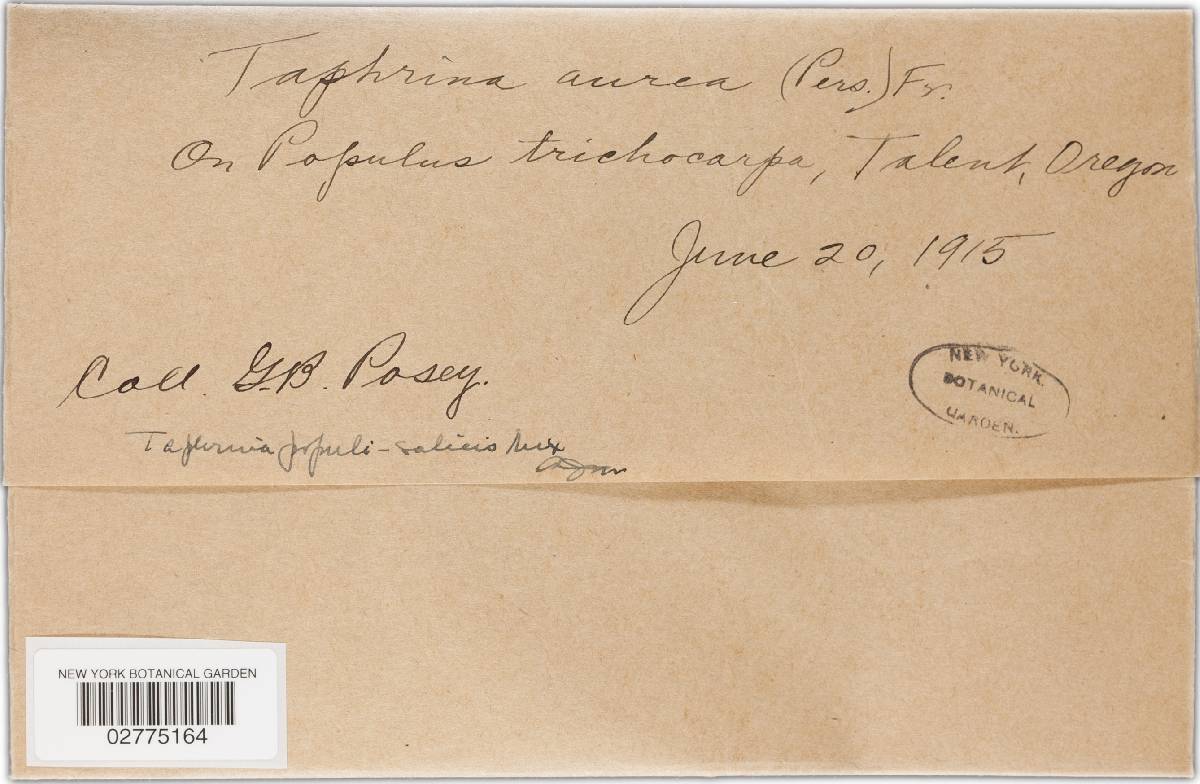 Taphrina aurea (Pers.) Fr.
On Populus trichocarpa, Talent, Oregon
June 20, 1915
Coll. G.B. Posey.
NEW YORK
BOTANICAL
GARDEN.
Taphrina populi-salicis Mix
NEW YORK BOTANICAL GARDEN
02775164